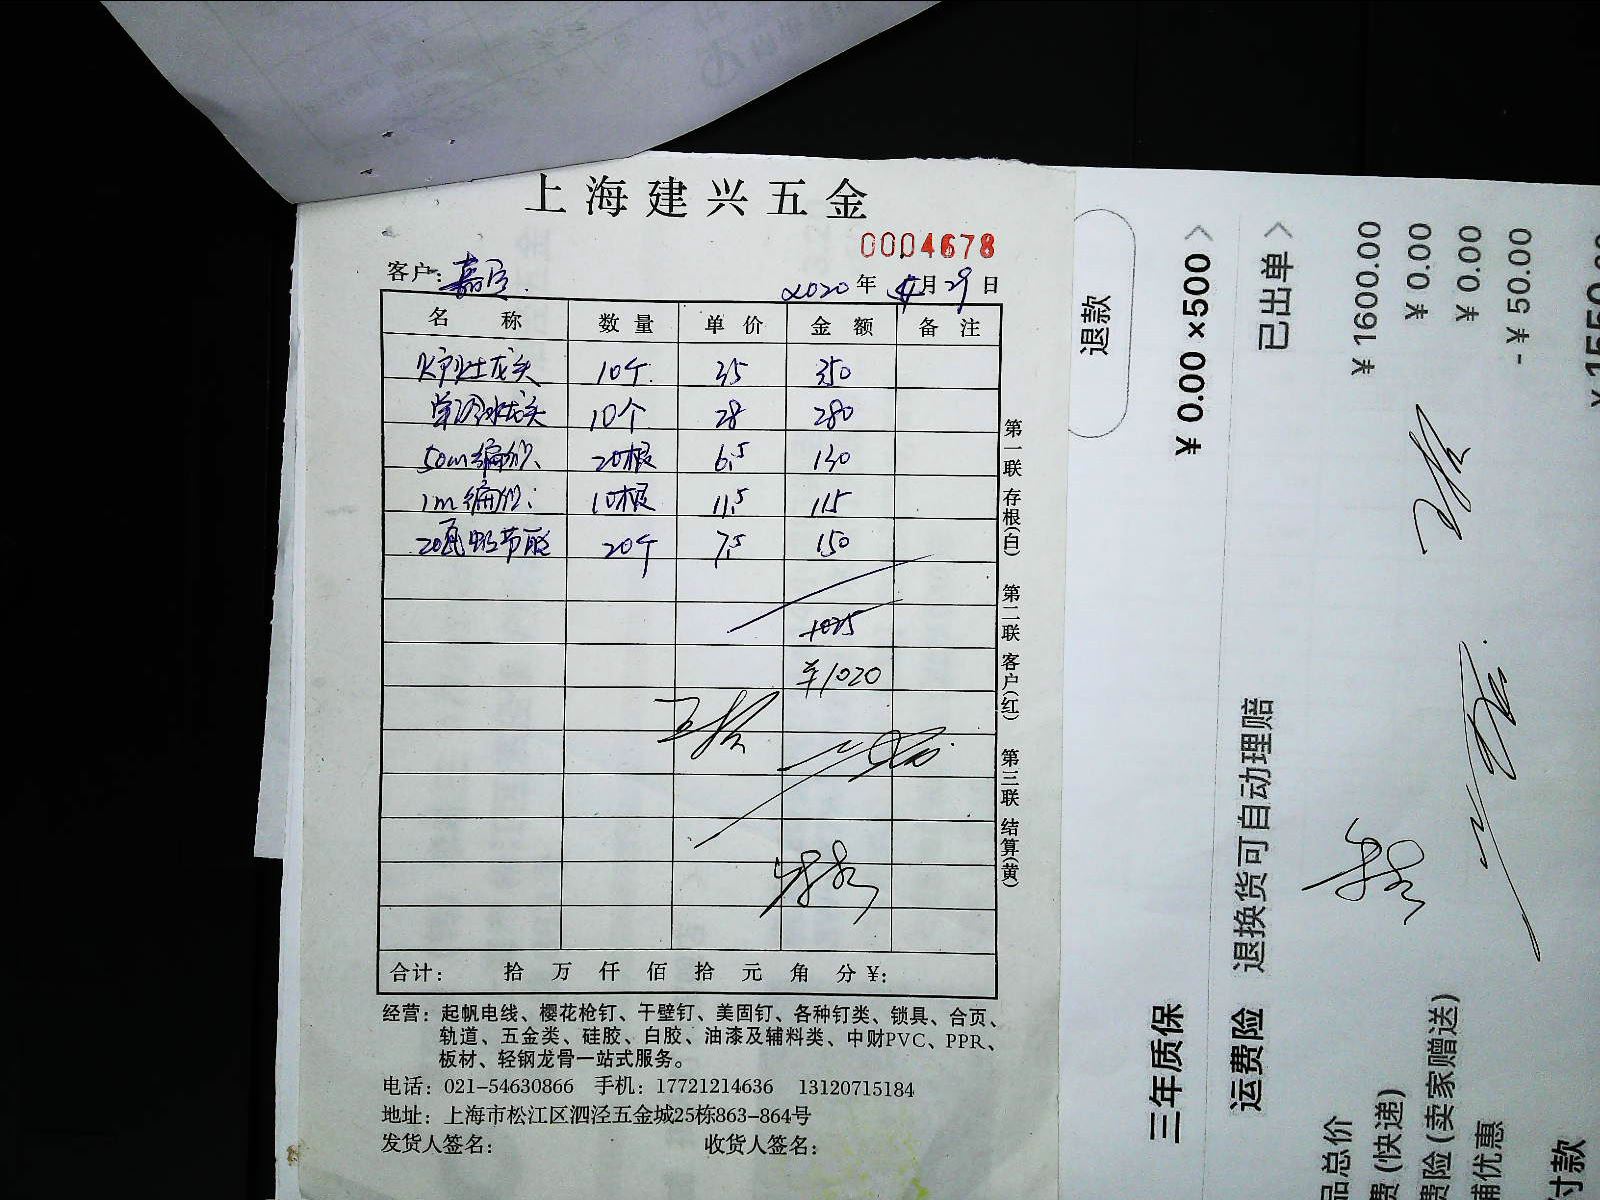 上海建兴五金
0004678
客户: 嘉
2020年4月29日
名称 数量 单价 金额 备注
龙头 10个 35 350
单冷水龙头 10个 28 280
50m编织 20根 6.5 130
1m编织 10根 11.5 115
20瓦 节能 20个 7.5 150
1025
¥1020
合计: 拾 万 仟 佰 拾 元 角 分 ¥:
第一联 存根(白) 第二联 客户(红) 第三联 结算(黄)
经营: 起帆电线、樱花枪钉、干壁钉、美固钉、各种钉类、锁具、合页、
轨道、五金类、硅胶、白胶、油漆及辅料类、中财PVC、PPR、
板材、轻钢龙骨一站式服务。
电话: 021-54630866 手机: 17721214636 13120715184
地址: 上海市松江区泗泾五金城25栋863-864号
发货人签名: 收货人签名:
退款
¥0.00 ×500 >
三年质保
已出单 >
运费险 退换货可自动理赔
品总价 ¥1600.00
费(快递) ¥0.00
费险(卖家赠送) ¥0.00
铺优惠 -¥50.00
寸款